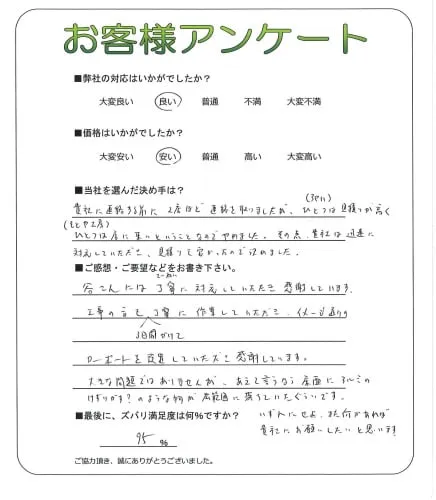 お客様アンケート
■弊社の対応はいかがでしたか?
大変良い 良い 普通 不満 大変不満
■価格はいかがでしたか?
大変安い 安い 普通 高い 大変高い
■当社を選んだ決め手は?
貴社に連絡する前に2店ほど連絡を取りましたが、ひとつは見積りが高く
ひとつは店に来いということなのでやめました。その点、貴社は迅速に
対応していただき、見積りも安かったので決めました。
■ご感想・ご要望などをお書き下さい。
には丁寧に対応していただき感謝しています。
工事の方も丁寧に作業していただき、イメージ通りの
3日間かけて
ボートを設置していただき感謝しています。
大きな問題ではありませんが、あえて言うなら床面にアルミの
けずりカス?のような物が広範囲に落ちていたぐらいです。
■最後に、ズバリ満足度は何%ですか?
いずれにせよ、また何かあれば
貴社にお願いしたいと思います!
95 %
ご協力頂き、誠にありがとうございました。